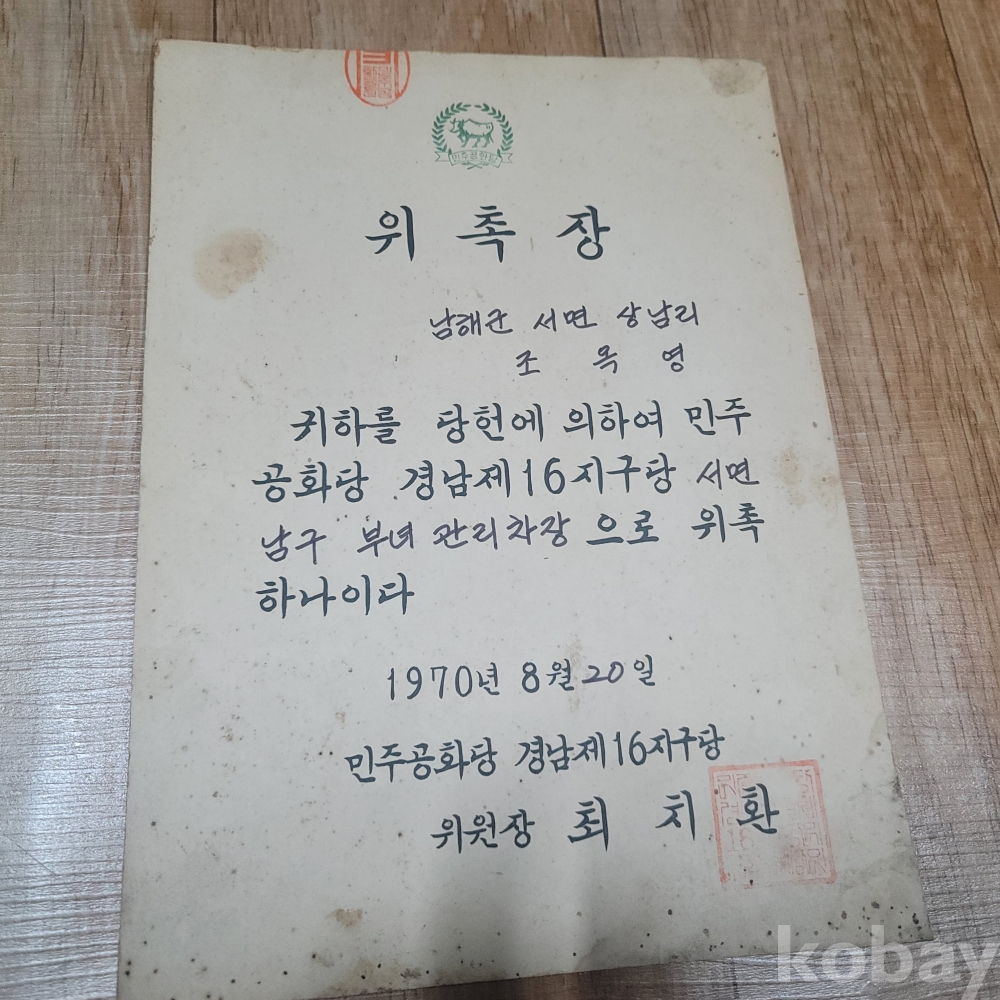 민주공화당
위촉장
남해군 서면 상남리
조옥영
귀하를 당헌에 의하여 민주
공화당 경남제16지구당 서면
남구 부녀 관리차장 으로 위촉
하나이다
1970년 8월 20일
민주공화당 경남제16지구당
위원장 최치환
kobay